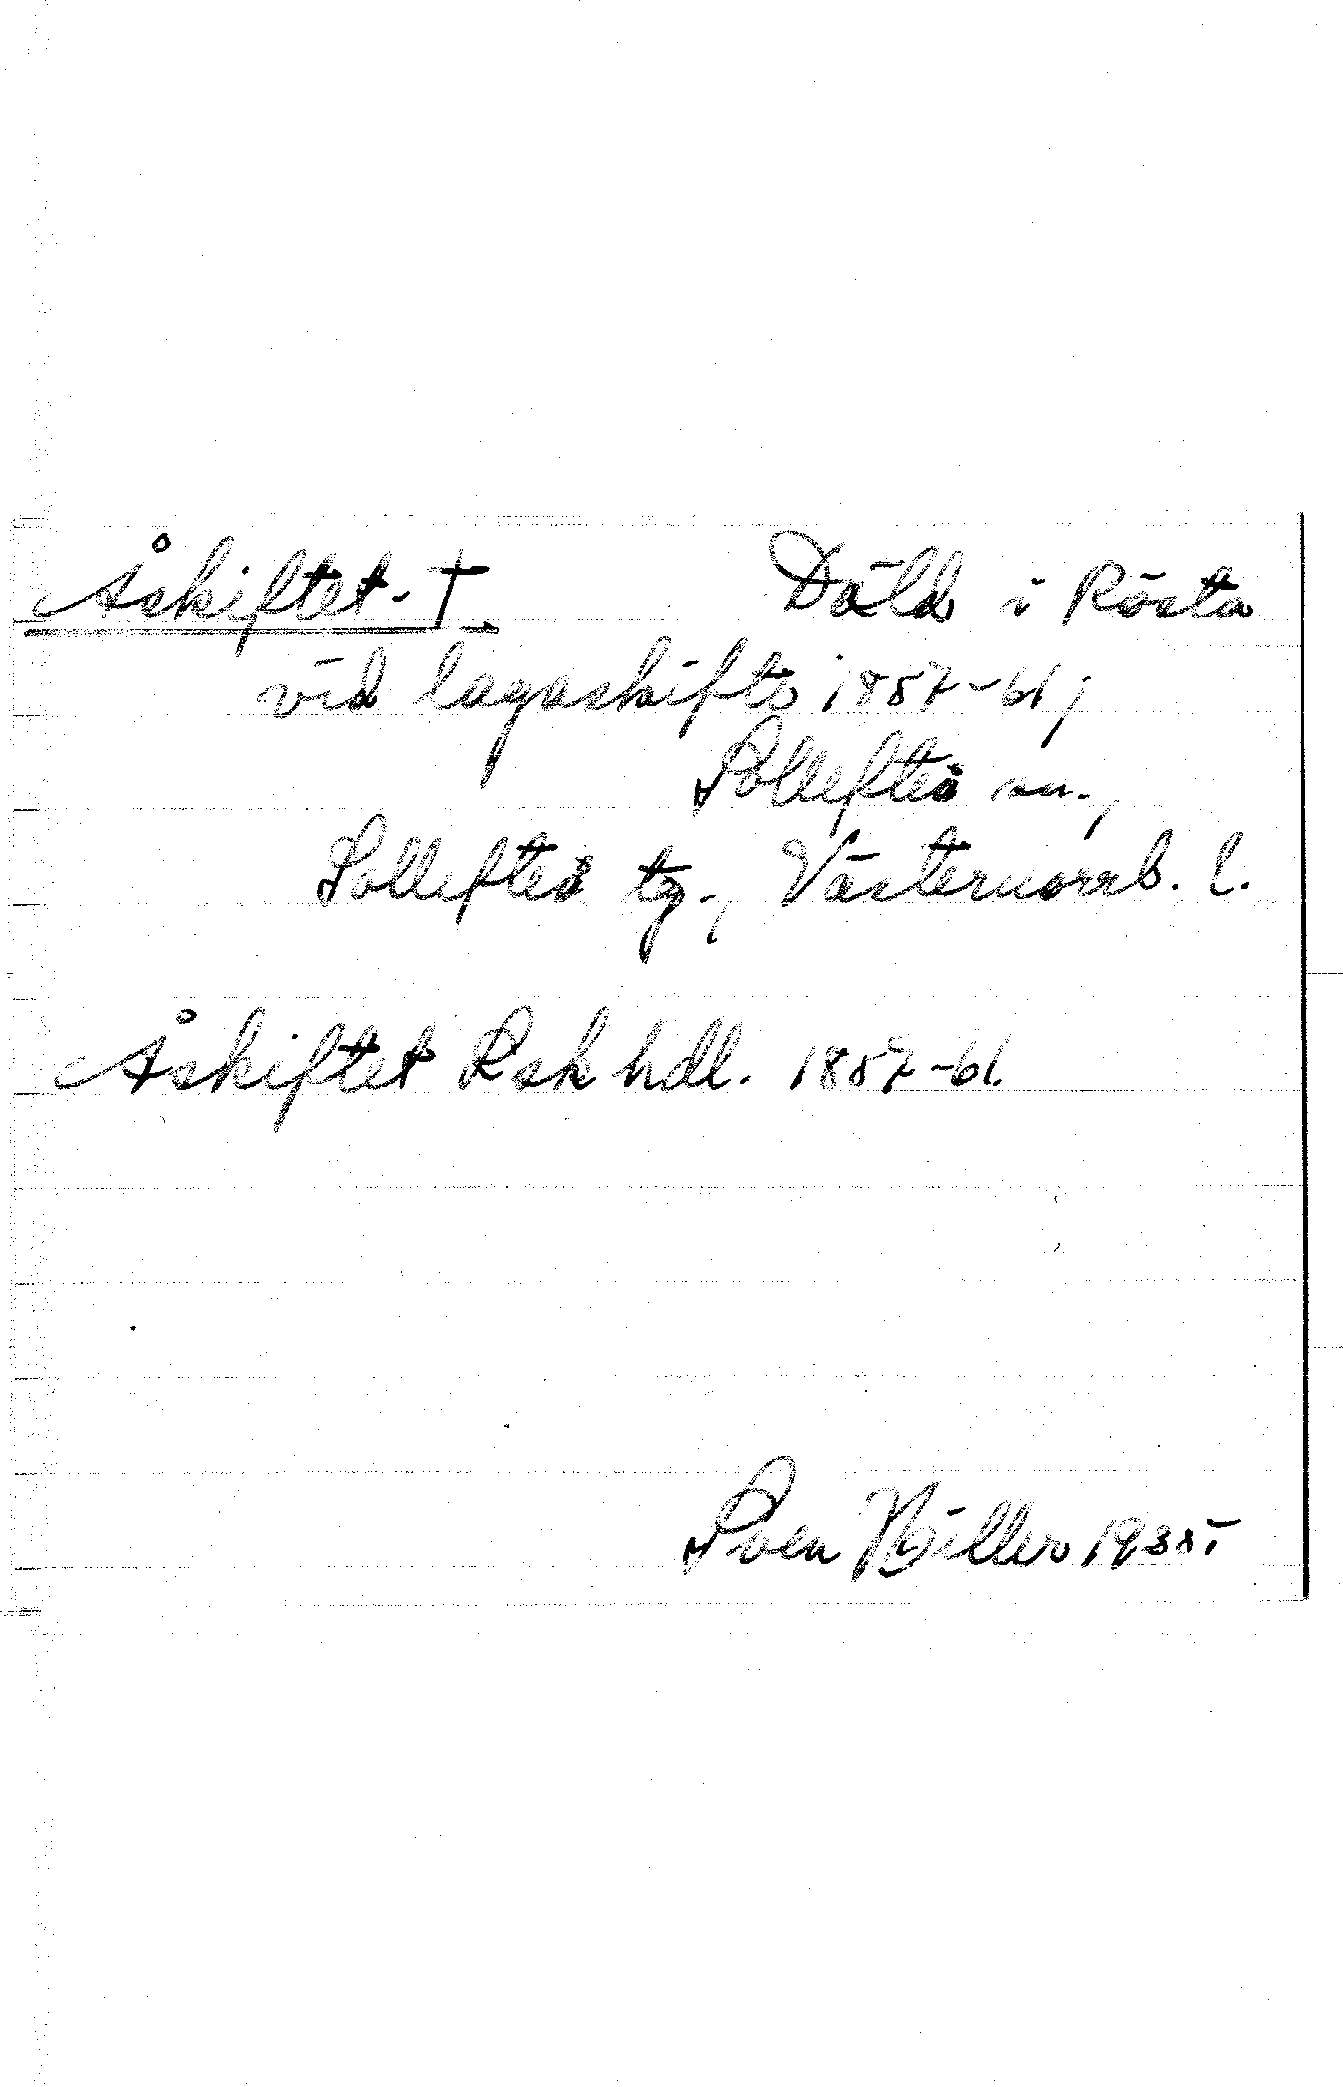 Åskiftet. † Däld i Rösta
vid lagaskifte 1857-61;
Sollefteå sn.,
Sollefteå tg., Västernorrl. l.
Åskiftet Rsk hdl. 1857-61.
Sven Hiller 1935